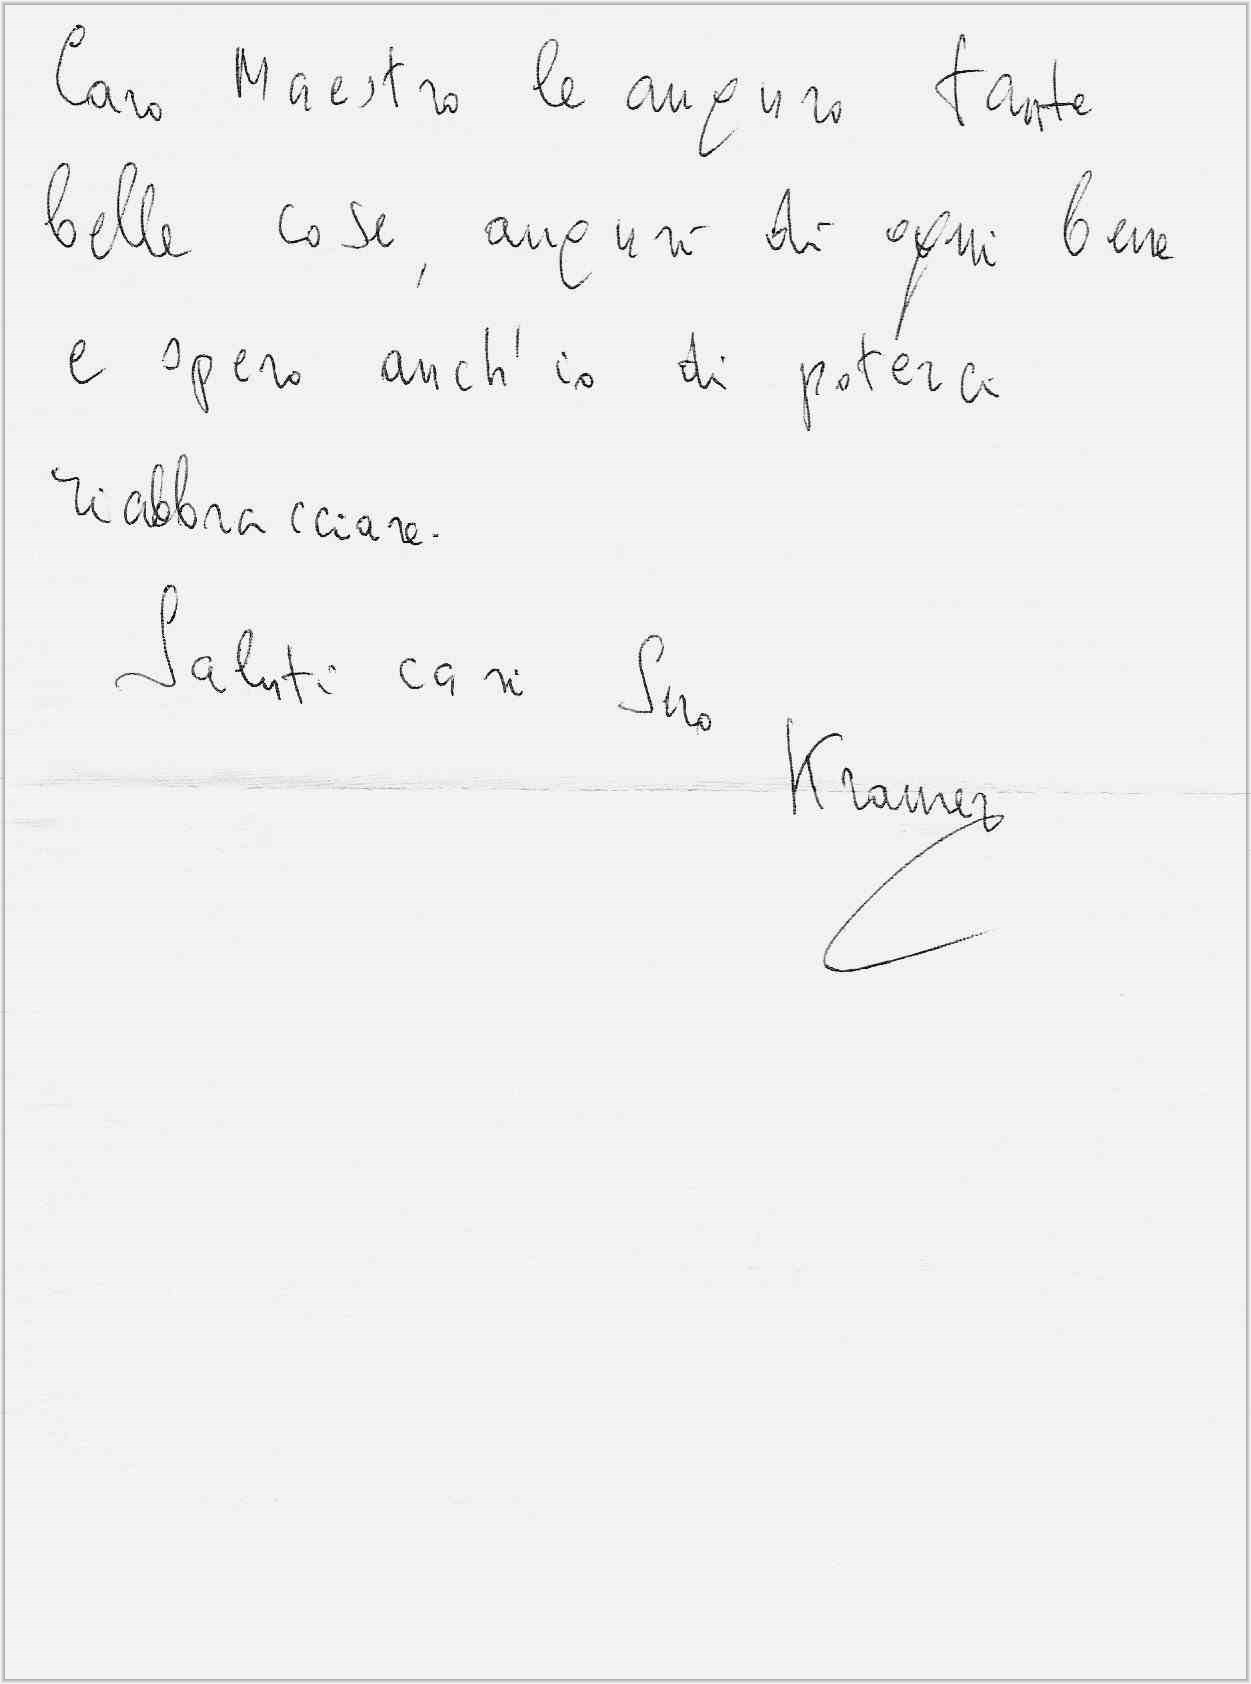 Caro Maestro le auguro tante
belle cose, auguri di ogni bene
e spero anch'io di poterci
riabbracciare.
Saluti cari Suo
Kramer